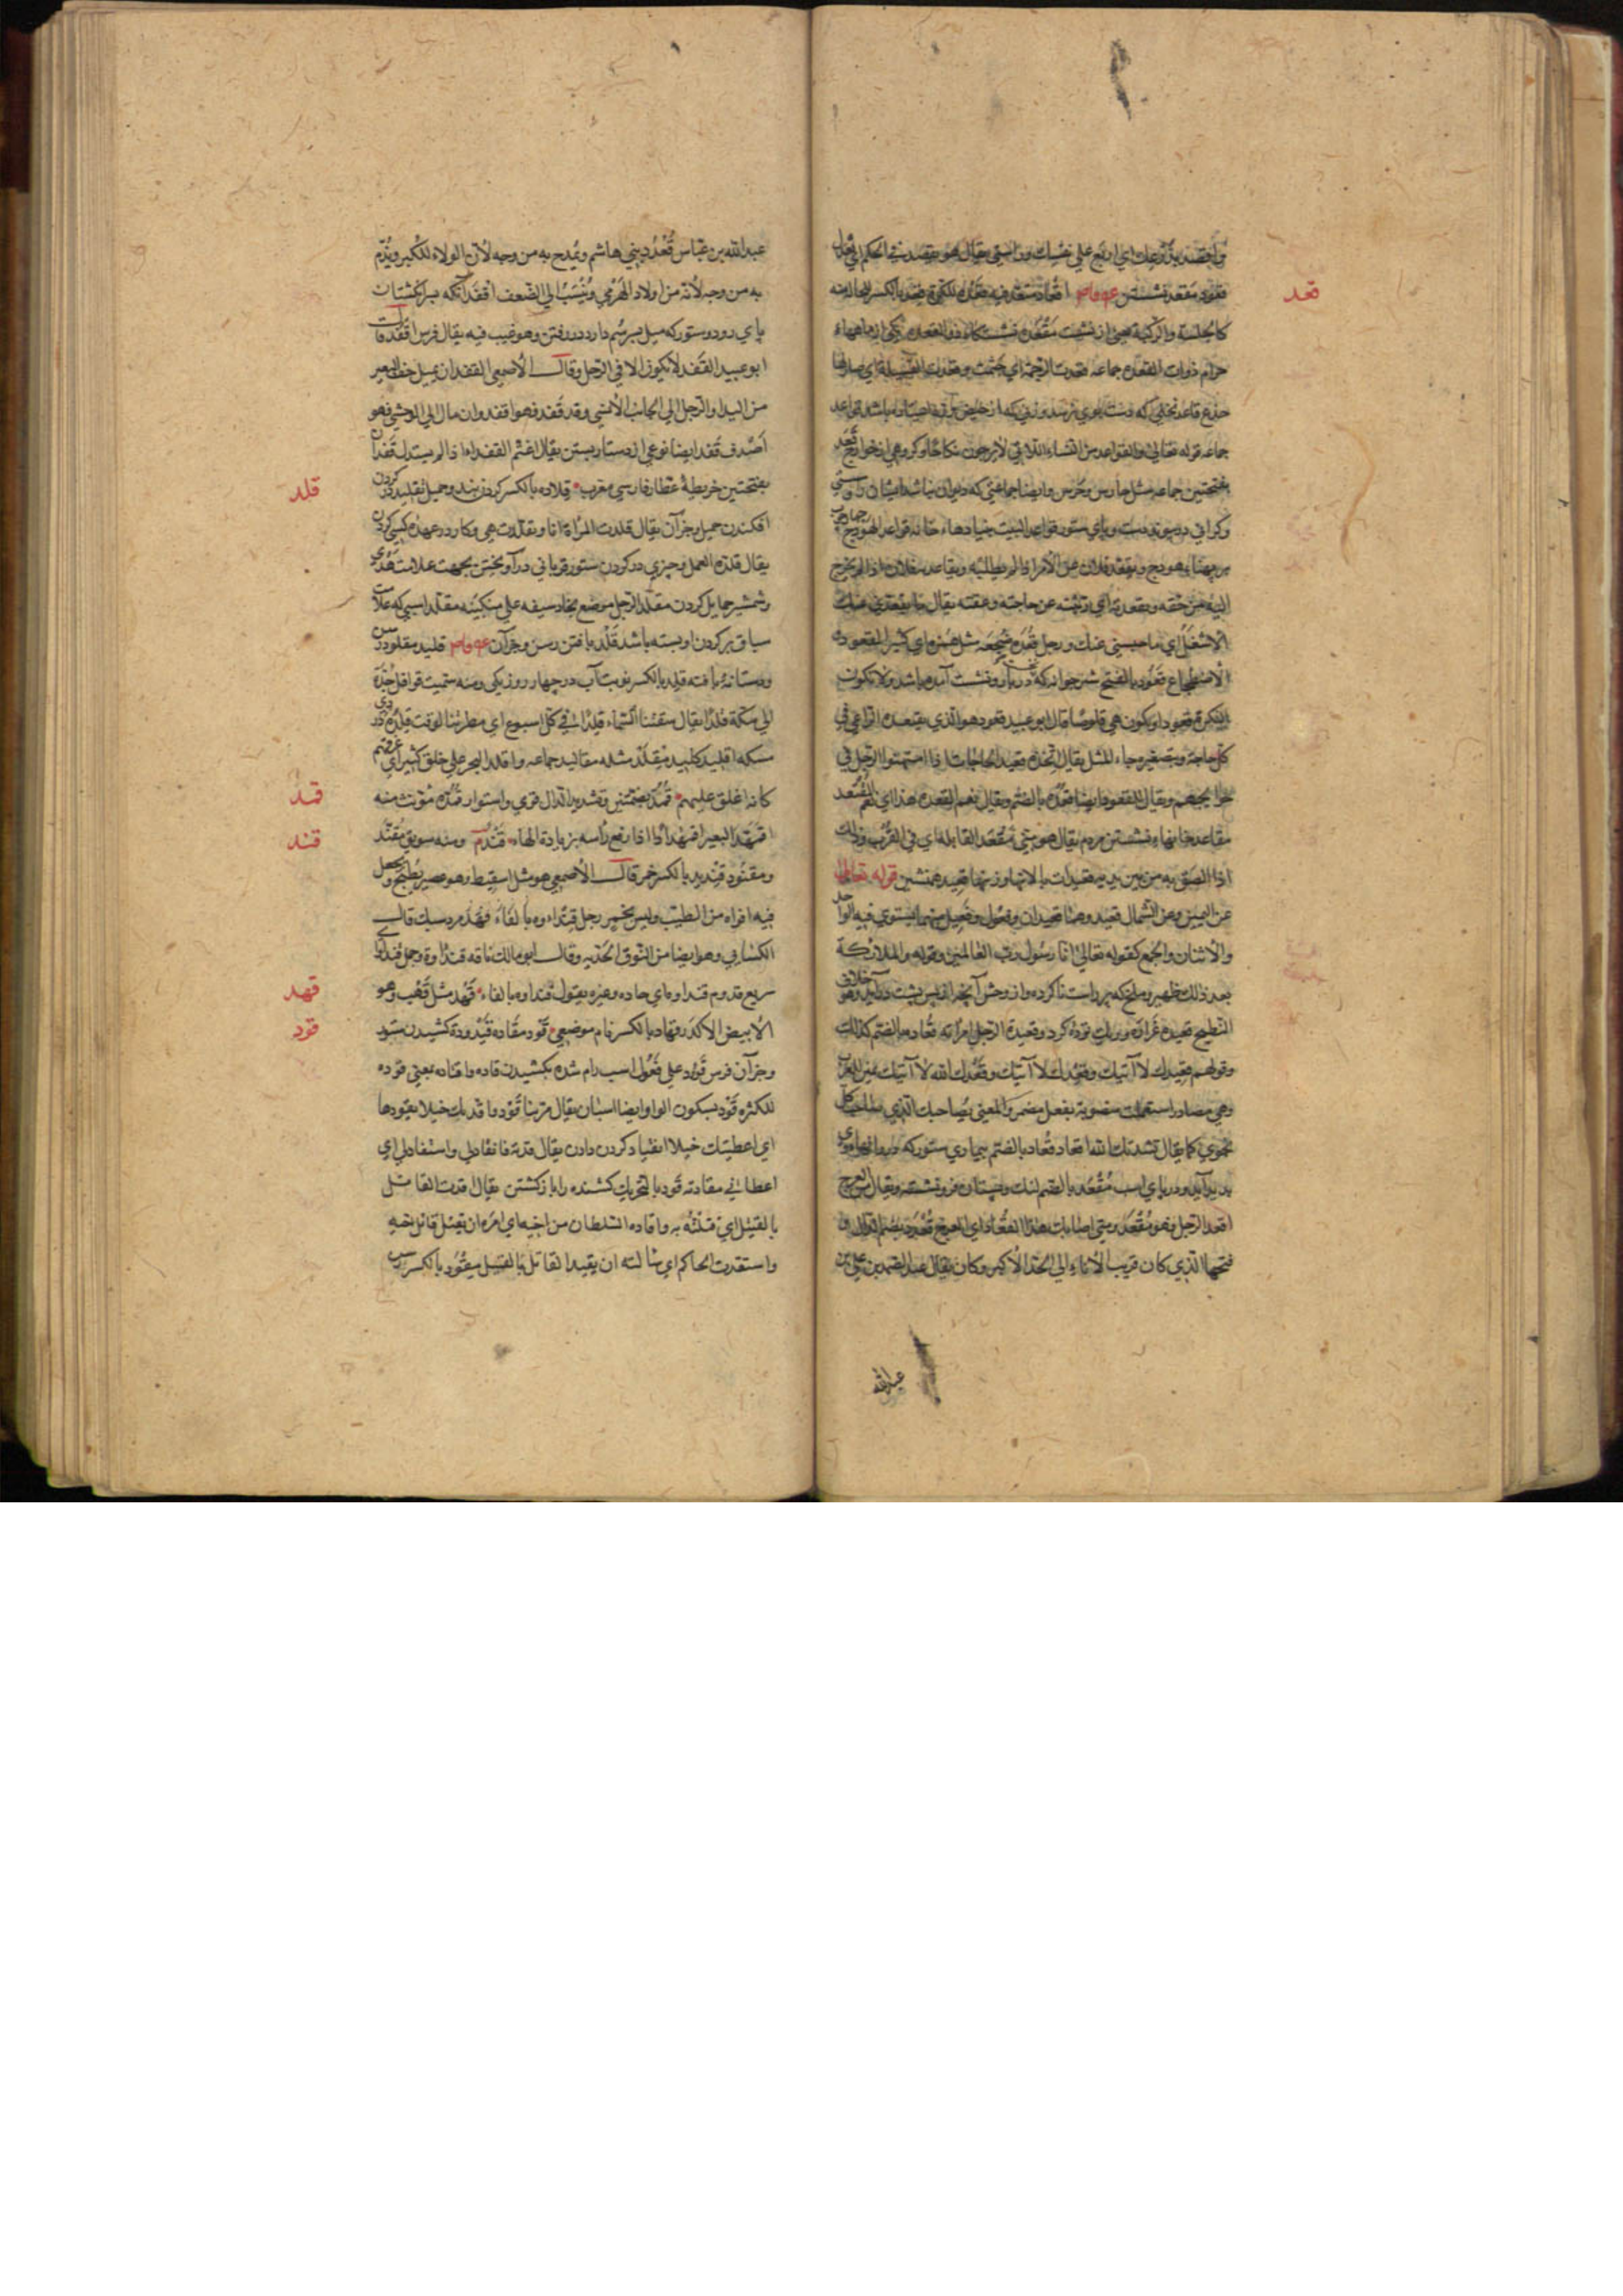 قعد
واقصد بذرعك اي اربع علي نفسك وراستي يقال هو يقصد في الحكم اي
قعود مقعد نشستن
كالجلسة والركبة يعني از نشست مقعده نشستكاه ذوالقعده يكي از ماههاء
حرام ذوات القعده جماعه قعدت الرخمة اي جثمت وقعدت الفسيلة اي صار لها
جذع قاعد نخلي كه دست بوي نرسد وزني كه از حيض
جماعه قوله تعالي والقواعد من النساء اللاتي لا يرجون نكاحا
بفتحتين جماعه مثل حارس وحرس وايضا جماعتي كه ديوان نباشد ايشان را
وكراني در پيوند دست وپاي ستور قواعد البيت بنيادهاء خانه قواعد الهودج
هودج وتقعد فلان عن الأمر اذا لم يطلبه وتقاعد بفلان اذا لم يخرج
اليه من حقه وتقعدته اي ربثته عن حاجته وعقته يقال ما تقعدني عنك
الا شغل اي ما حبسني عنك ورجل قعده ضجعه مثل همزه اي كثير القعود
الاضطجاع قعود بالفتح شتر جوانه كه در بار ونشست آمده باشد ولا تكون
البكرة قعودا وتكون هي قلوصا قال ابو عبيد قعود هو الذي يقتعده الراعي في
كل حاجة وبتصغيره جاء المثل يقال اتخذه قعيد الحاجات اذا امتهنوا الرجل في
حوايجهم ويقال للقعود ايضا قعده بالضم ويقال نعم القعده هذا اي نعم المقتعد
مقاعد جايهاء نشستن مردم يقال هو مني مقعد القابلة اي في القرب وذلك
اذا الصق به من بين يديه قعيدات بالانها وزنها قعيد همنشين قوله تعالي
عن اليمين وعن الشمال قعيد وهما قعيدان وفعول وفعيل منهما يستوي فيه الواحد
والاثنان والجمع كقوله تعالي انا رسول رب العالمين وقوله والملائكة
بعد ذلك ظهير وملخ كه پر راست نا كرده واز وحش آنچه از پس پشت درآيد وهو خلاف
النطيح قعيده غراره وريك توده كرد وقعيدة الرجل امرأته قعاد بالضم كذلك
وقولهم قعيدك لا آتيك وقعدك لا آتيك وقعدك الله لا آتيك يمين للعرب
وهي مصادر استعملت منصوبة بفعل مضمر والمعني بصاحبك الذي صاحب كل
نجوي كما يقال نشدتك الله اقعاد قعاد بالضم بيماري ستور كه
پديد آيد ودر پاي اسب مقعد بالضم لنك وپستان فرو نشسته ويقال من العرج
اقعد الرجل فهو مقعد ومتي اصابك هذا القعاد اي العرج قعدد بضم الدال و
فتحها الذي كان قريب الآباء الي الجد الأكبر وكان يقال عبد الصمد بن علي بن
عبدالله
عبدالله بن عباس قعدد بني هاشم ويمدح به من وجه لأن الولاء للكبر ويذم
به من وجه لأنه من اولاد الهرمي وينسب الي الضعف اقفد آنكه بر انكشتان
پاي رود وستور كه ميل بر سم دارد در رفتن وهو عيب فيه يقال فرس اقفد قال
ابو عبيد القفد لا يكون الا في الرجل وقال الأصمعي القفد ان يميل خف البعير
من اليد او الرجل الي الجانب الأنسي وقد قفد فهو اقفد وان مال الي الوحشي فهو
اصدف قفد ايضا نوعي از دستار بستن يقال اعتم القفداء اذا لم يسدل قفدان
بفتحتين خريطهٔ عطار فارسي معرب قلاده بالكسر كردن بند وحميل تقليد در كردن
قلد
افكندن حميل وجز آن يقال قلدت المرأة انا وتقلدت هي وكار در عهده كسي كردن
يقال قلده العمل وچيزي در كردن ستور قرباني درآويختن بجهت علامت هدي
وشمشير حمايل كردن مقلد الرجل موضع نجاد سيفه علي منكبيه مقلد اسبي كه علامت
سباق بر كردن او بسته باشد قلد بافتن رسن وجز آن قليد مقلود رسن
ودستانهٔ بافته قلد بالكسر نوبت آب در چهار روز يكي ومنه سميت قوافل جدة
الي مكة قلدا يقال سقتنا السماء قلدا في كل اسبوع اي مطرتنا لوقت قلده دردي
مسكه اقليد كليد مقلد مثله مقاليد جماعه واقلد البحر علي خلق كثير اي غرقهم
كانه اغلق عليهم قمد بضمتين وتشديد الدال قوي واستوار قمده مؤنث منه
قمد
اقمهد البعير اقمهدادا اذا رفع رأسه بزيادة الهاء قند م ومنه سويق مقند
قند
ومقنود قنديد بالكسر خمر قال الأصمعي هو مثل اسفنط وهو عصير يطبخ ويجعل
فيه افواه من الطيب وليس بخمر رجل قندأوه بالفاء قهد مرد سبك قال
الكسائي وهو ايضا من النوق الجريه وقال ابو مالك ناقه قندأوة وجمل قندأو اي
سريع قدوم قنداوه اي حاده وغيره يقول فنداوه بالفاء قهد مثل قهب وهو
قهد
الأبيض الأكدر قهاد بالكسر نام موضعي قود مقاده قيدودة كشيدن ستور
قود
وجز آن فرس قؤود علي فعول اسب رام شده بكشيدن قاده واقتاده بمعني قوده
للكثره قود بسكون الواو ايضا اسبان يقال مر بنا قود واقدتك خيلا تقودها
اي اعطيتك خيلا انقياد كردن دادن يقال قدته فانقاد لي واستقاد لي اي
اعطاني مقادته قود بالتحريك كشنده را باز كشتن يقال اقدت القاتل
بالقتيل اي قتلته به واقاده السلطان من اخيه اي امره ان يقتل قاتل اخيه
واستقدت الحاكم اي سالته ان يقيد القاتل بالقتيل مقود بالكسر رسن